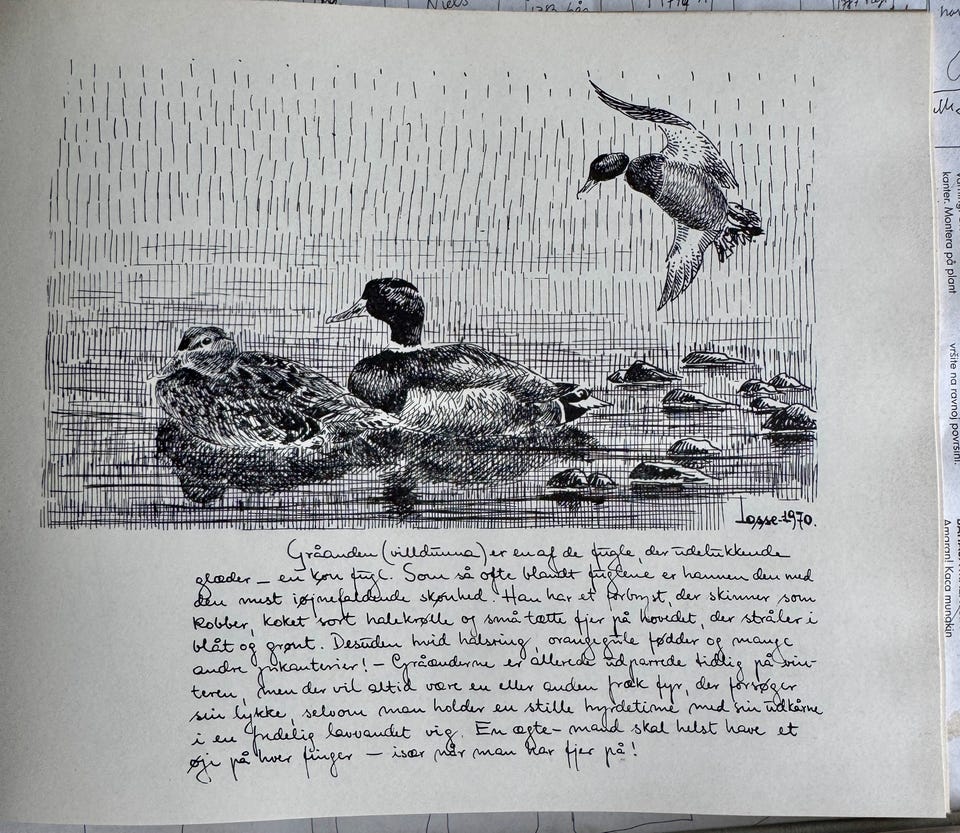 Niels
Losse-1970.
Gråanden (villdunna) er en af de fugle, der udelukkende
glæder – en køn fugl. Som så ofte blandt fuglene er hannen den med
den mest iøjnefaldende skønhed. Han har et forbryst, der skinner som
kobber, koket sort halekrølle og små tætte fjer på hovedet, der stråler i
blåt og grønt. Desuden hvid halsring, orangegule fødder og mange
andre pikanterier! – Gråænderne er allerede udparrede tidlig på vin-
teren, men der vil altid være en eller anden fræk fyr, der forsøger
sin lykke, selvom man holder en stille hyrdetime med sin udkårne
i en fredelig lavvandet vig. En ægte-mand skal helst have et
øje på hver finger – især når man har fjer på!
kanter. Montera på plant
vršite na ravnoj površini.